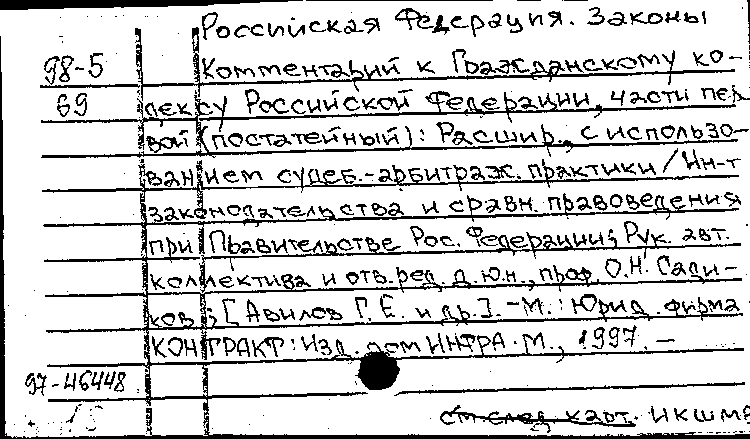 Российская Федерация. Законы
98-5 Комментарий к Гражданскому ко-
69 дексу Российской Федерации, части пер
вой (постатейный): Расшир., с использо-
ванием судеб.-арбитраж. практики / Ин-т
законодательства и сравн. правоведения
при Правительстве Рос. Федерации; Рук. авт.
коллектива и отв. ред. д.ю.н., проф. О.Н. Сади-
ков; [Авилов Г.Е. и др.]. - М.: Юрид. фирма
КОНТРАКТ: Изд. дом ИНФРА·М., 1997. -
97-46448
15
ст. след. карт. ИКШМ